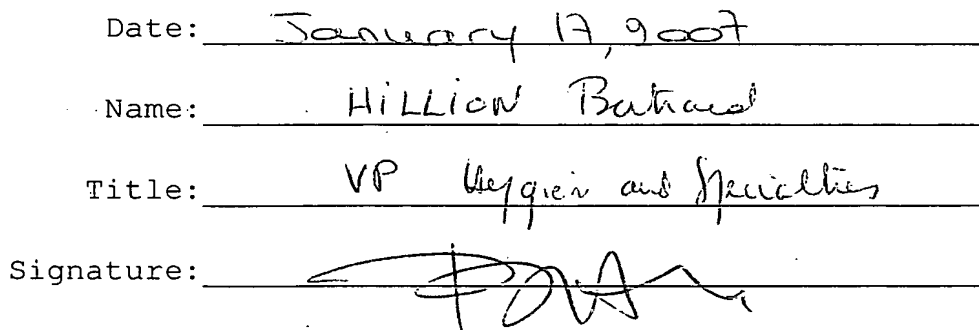 Date: January 17, 2007
Name: HiLLiON Bertrand
Title: VP Hygien and Specialties
Signature: